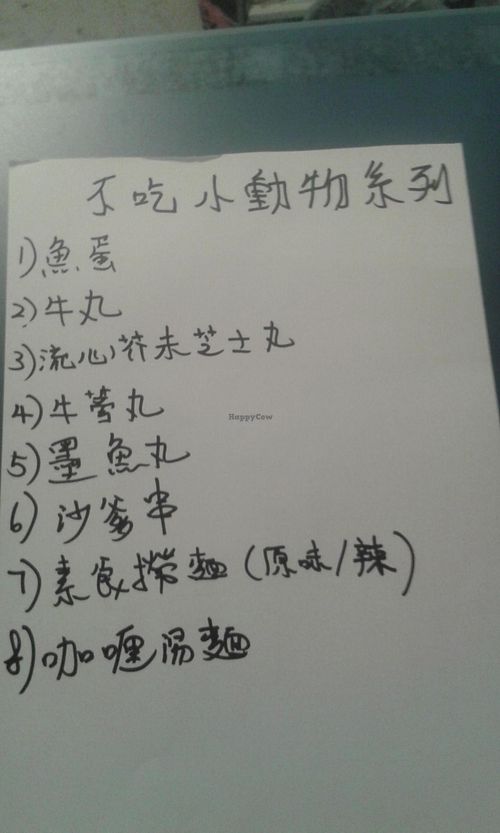 不吃小動物系列
1) 魚蛋
2) 牛丸
3) 流心芥末芝士丸
4) 牛蒡丸
HappyCow
5) 墨魚丸
6) 沙爹串
7) 素食撈麵 (原味/辣)
8) 咖喱湯麵